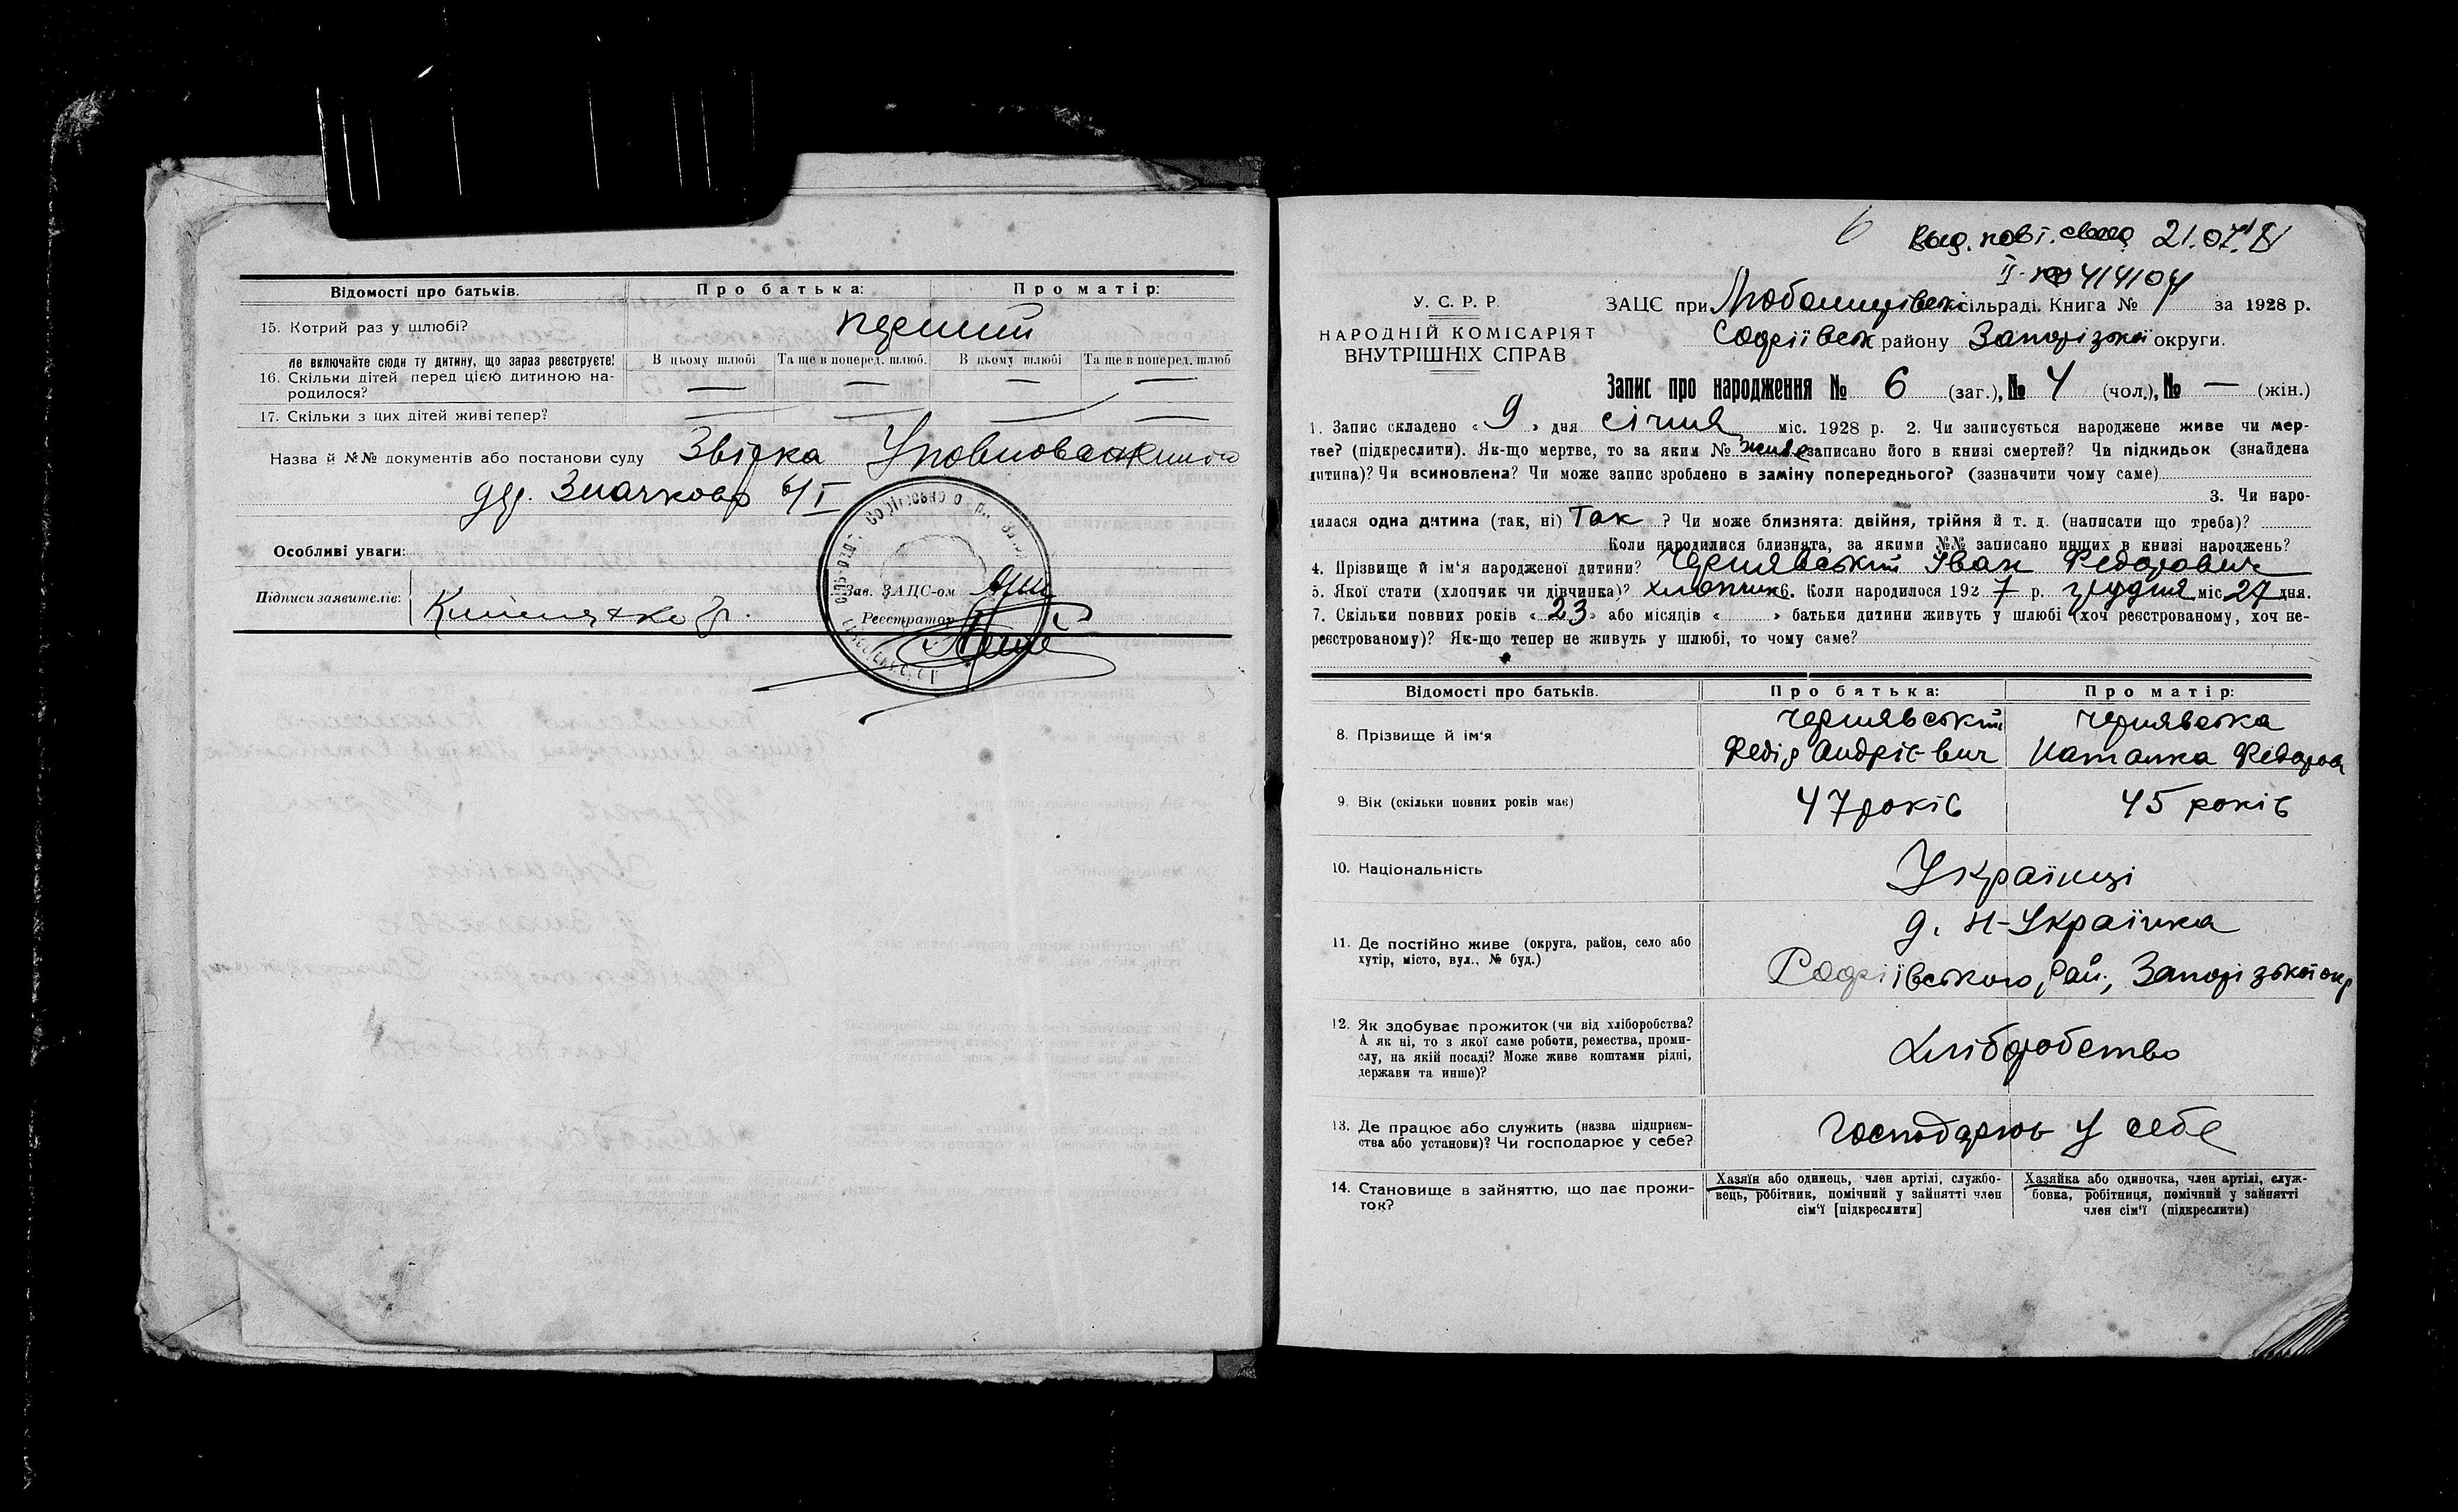 Відомості про батьків. Про батька: Про матір:
15. Котрий раз у шлюбі? перший
Не включайте сюди ту дитину, що зараз реєструєте! В цьому шлюбі Та ще в поперед. шлюб. В цьому шлюбі Та ще в поперед. шлюб
16. Скільки дітей перед цією дитиною на- — — — —
родилося?
17. Скільки з цих дітей живі тепер? — — — —
Назва й №№ документів або постанови суду Звістка Уповноваженого
дер. Значково 6/I
Особливі уваги:
Підписи заявителів:
Зав. ЗАЦС-ом
Реєстратор
6
Выд. повт. 21.07.
II- 414104
У. С. Р. Р.
НАРОДНІЙ КОМІСАРІЯТ
ВНУТРІШНІХ СПРАВ
ЗАЦС при сільраді. Книга № 1 за 1928 р.
Софіївськ району Запорізької округи.
Запис про народження № 6 (заг.), № 4 (чол.), № — (жін.)
1. Запис складено « 9 » дня січня міс. 1928 р. 2. Чи записується народжене живе чи мер-
тве? (підкреслити). Як-що мертве, то за яким № живе записано його в книзі смертей? Чи підкидьок (знайдена
дитина)? Чи всиновлена? Чи може запис зроблено в заміну попереднього? (зазначити чому саме)
3. Чи наро-
дилася одна дитина (так, ні) Так ? Чи може близнята: двійня, трійня й т. д. (написати що треба)?
Коли народилися близнята, за якими №№ записано инших в книзі народжень?
4. Прізвище й ім'я народженої дитини? Чернявський Іван Федорович
5. Якої стати (хлопчик чи дівчинка)? хлопчик 6. Коли народилося 192 7 р. грудня міс 27 дня.
7. Скільки повних років « 23 » або місяців « » батьки дитини живуть у шлюбі (хоч реєстрованому, хоч не-
реєстрованому)? Як-що тепер не живуть у шлюбі, то чому саме?
Відомості про батьків. Про батька: Про матір:
8. Прізвище й ім'я Чернявський Чернявська
Федір Андрієвич Наталка Федоров
9. Вік (скільки повних років має) 47 років 45 років
10. Національність Українці
11. Де постійно живе (округа, район, село або
хутір, місто, вул., № буд.)
д. Н-Українка
Софіївського, Рай, Запорізької окр
12. Як здобуває прожиток (чи від хліборобства?
А як ні, то з якої саме роботи, ремества, проми-
слу, на якій посаді? Може живе коштами рідні,
держави та инше)?
Хліборобство
13. Де працює або служить (назва підприєм-
ства або установи)? Чи господарює у себе?
Господарює у себе
14. Становище в зайняттю, що дає прожи-
ток?
Хазяїн або одинець, член артілі, службо-
вець, робітник, помічний у зайнятті член
сім'ї [підкреслити]
Хазяйка або одиночка, член артілі, служ-
бовка, робітниця, помічний у зайнятті
член сім'ї (підкреслити)